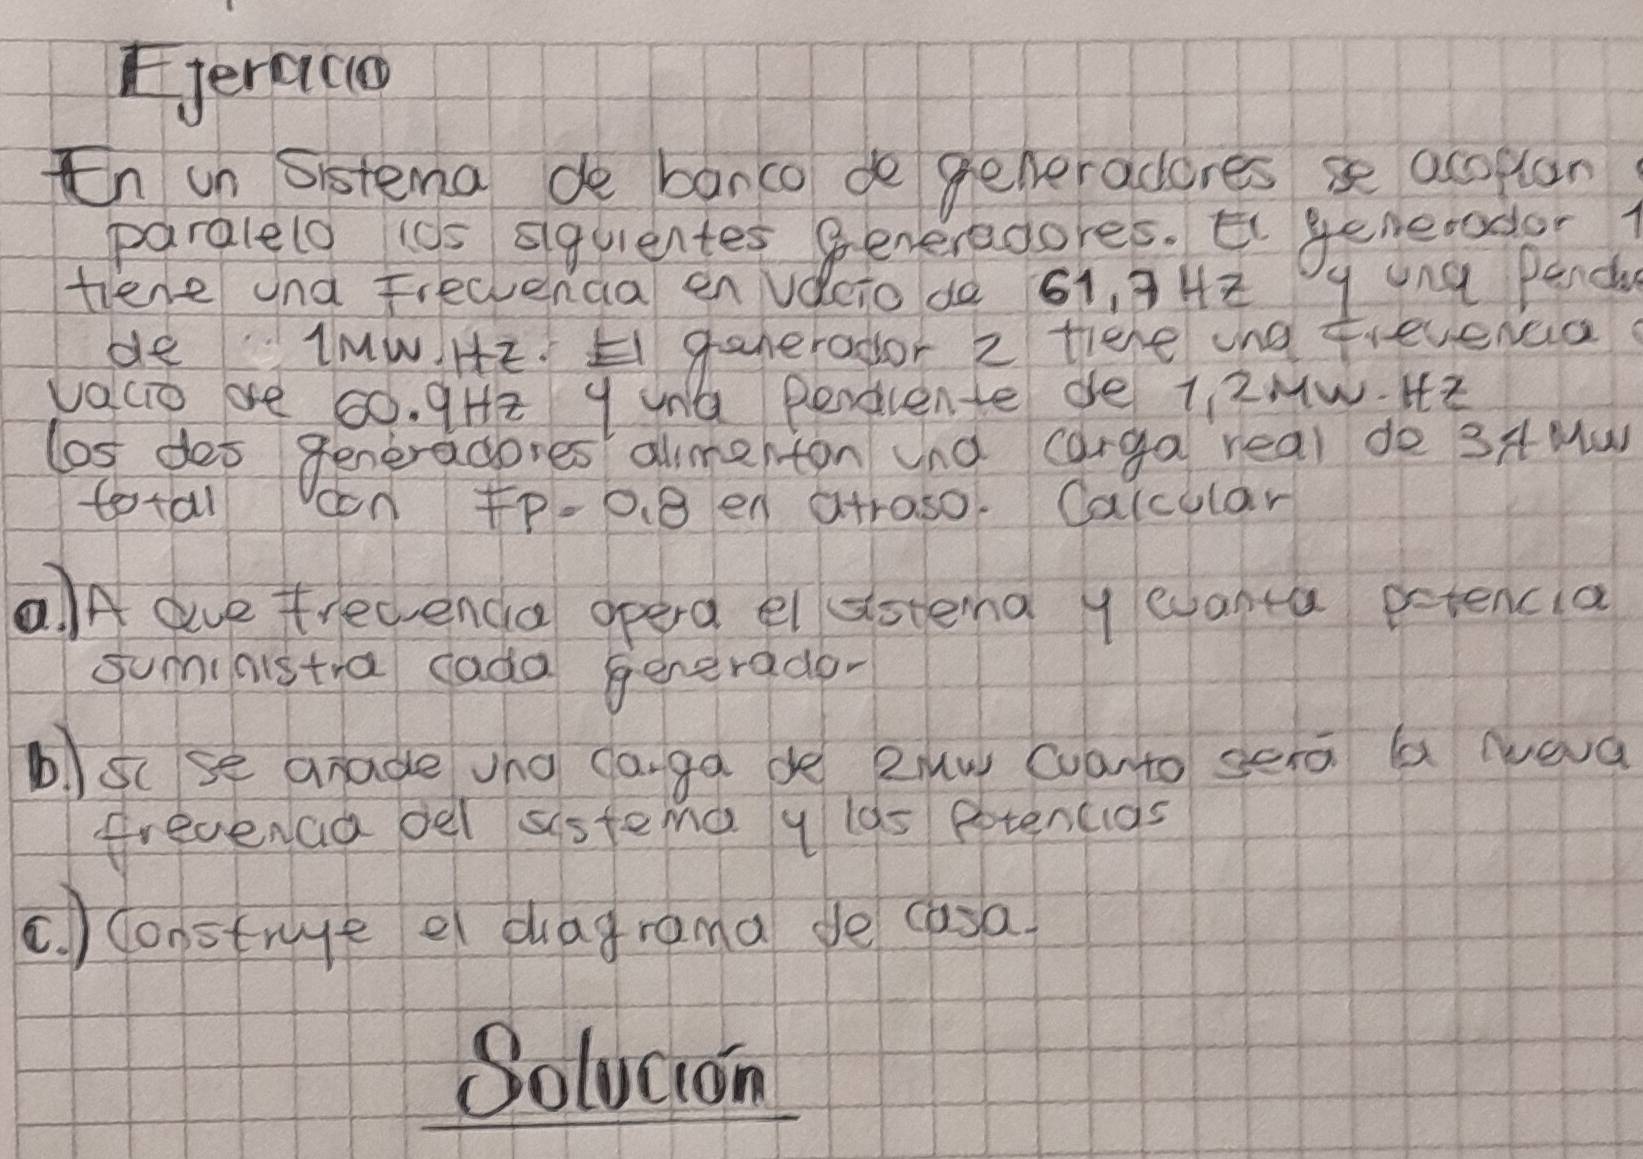 Ejercicio
En un sistema de banco de generadores se acoplan
paralelo los siguientes generadores. El generador 1
tiene una Frecuencia en vacio de 61,7 Hz y una Pend
de 1MW.Hz. El generador 2 tiene una frecuencia
vacio de 60.9Hz y una Pendiente de 1,2MW.Hz
los dos generadores alimentan una carga real de MW
total con FP=0.8 en atraso. Calcular
a.) A que frecuencia opera el sistema y cuanta potencia
suministra cada generador
b.) si se añade una carga de 2MW Cuanto será la nueva
frecuencia del sistema y las Potencias
c.) Construye el diagrama de casa.
Solución